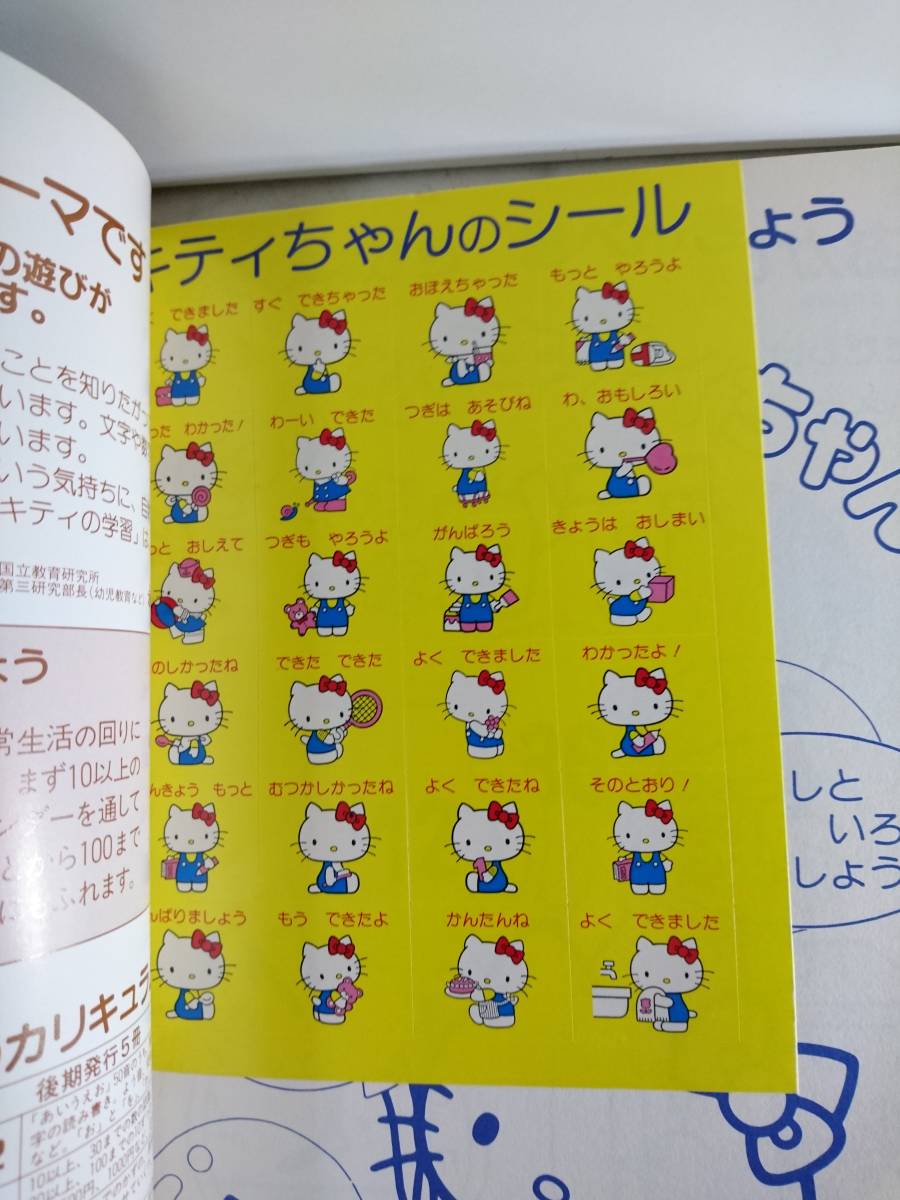 ーマです
の遊びが
す。
ことを知りたが
います。文字や数
います。
いう気持ちに、自
キティの学習」は
国立教育研究所
第三研究部長(幼児教育など)
よう
常生活の回りに
まず10以上の
ーを通して
から100まで
ふれます。
カリキュラ
後期発行5冊
「あいうえお」50音の
字の読み書き、よう
など。「お」と「を」
10以上、30までの数の
以上、100までの
キティちゃんのシール
できました
すぐ できちゃった
おぼえちゃった
もっと やろうよ
った わかった!
わーい できた
つぎは あそびね
わ、おもしろい
っと おしえて
つぎも やろうよ
がんばろう
きょうは おしまい
のしかったね
できた できた
よく できました
わかったよ!
んきょう もっと
むつかしかったね
よく できたね
そのとおり!
んばりましょう
もう できたよ
かんたんね
よく できました
ょう
ちゃん
しと
いろ
しょう